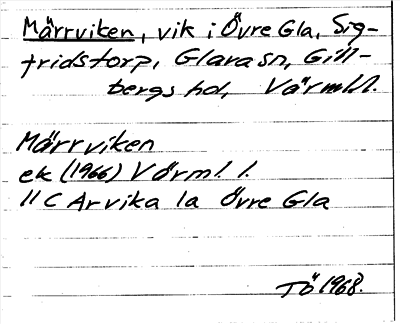 Märrviken, vik i Övre Gla, Sig-
fridstorp, Glava sn, Gill-
bergs hd, Värml.
Märrviken
ek (1966) Värml. l.
11 C Arvika 1a Övre Gla
TÖ 1968.